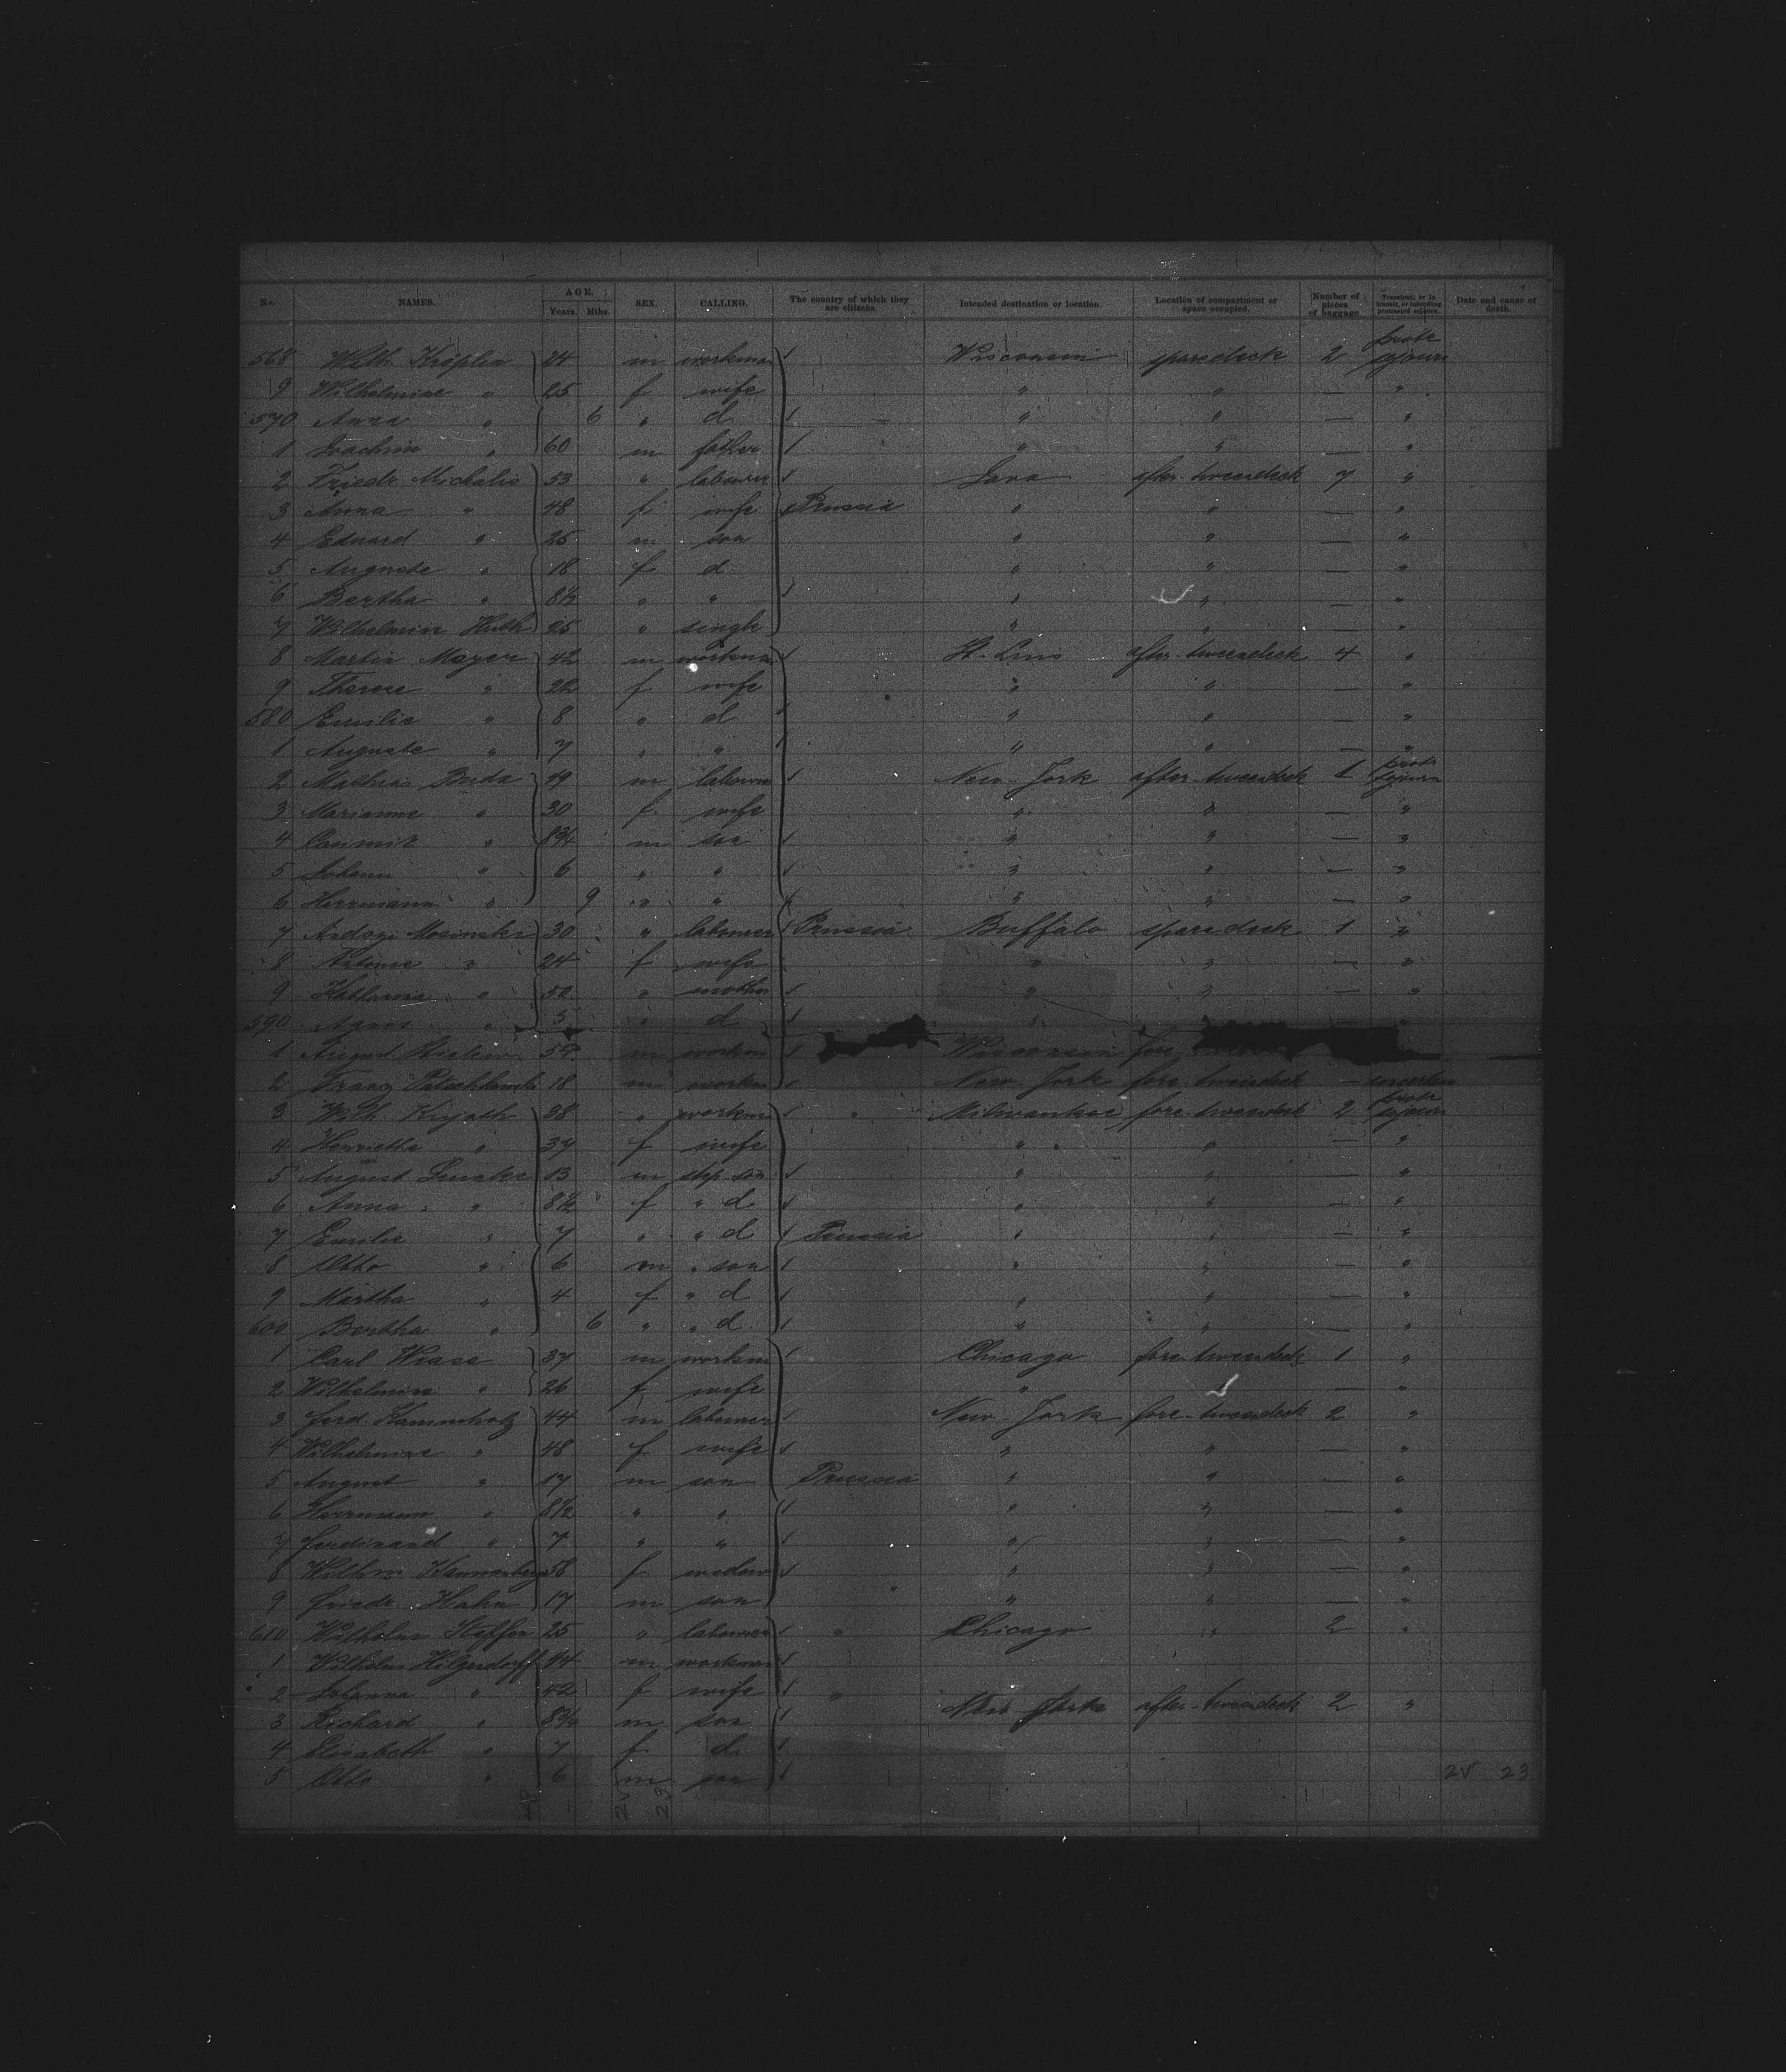 No. NAMES. AGE. Years. Mths. SEX. CALLING. The country of which they are citizens. Intended destination or location. Location of compartment or space occupied. Number of pieces of baggage. Transient, or in transit, or intending protracted sojourn. Date and cause of death.
568 Wilh. Kröplin 24 m workman Wisconsin spare deck 2 protr sojourn
9 Wilhelmine " 25 f wife " " — "
570 Anna " 6 " d " " — "
1 Joachim " 60 m father " " "
2 Friedr Michalis 53 " labourer after-tweendeck 7 "
3 Anna " 48 f wife Prussia " " — "
4 Eduard " 25 m son " " — "
5 Auguste " 18 f d " " — "
6 Bertha " 8½ " " " " — "
7 Wilhelmine Huth 25 " single " " — "
8 Martin Mayer 42 m workman after-tweendeck 4 "
9 Therese " 22 f wife " " — "
580 Emilie " 8 " d " " — "
1 Auguste " 7 " " " " — "
2 Mathias Buda 49 m labourer New-York after-tweendeck 1 protr sojourn
3 Marianne " 30 f wife " " — "
4 Casimir " 8¾ m son " " — "
5 Johann " 6 " " " " — "
6 Herrmann " 9 " " " " — "
7 Mosinski 30 " labourer Prussia Buffalo spare deck 1 "
8 Antonie " 24 f wife " " — "
9 Katharina " 50 " mother " " — "
590 Agnes " 5 " d "
1 August 54 m workm Wisconsin fore
2 Franz 18 m workm New York fore tweendeck —
3 Wilh Kujath 38 " workm " Milwaukee fore tweendeck 2 protr sojourn
4 Henriette " 37 f wife " " — "
5 August 13 m step son " " — "
6 Anna " 8½ f " d " " — "
7 Emilie " 7 " " d Prussia " " — "
8 Otto " 6 m " son " " — "
9 Martha " 4 f " d " " — "
600 Bertha " 6 " " d " " — "
1 Carl Wiese 37 m workm Chicago fore-tweendeck 1 "
2 Wilhelmine " 26 f wife " — "
3 Ferd. Kammholz 44 m labourer New-York fore-tweendeck 2 "
4 Wilhelmine " 48 f wife " " — "
5 August " 17 m son Prussia " " — "
6 Herrmann " 8½ " " " " — "
7 Ferdinand " 7 " " " " — "
8 Wilhm Kannenberg 58 f widow " " — "
9 Friedr. Hahn 17 m son " " — "
610 Wilhelm Steffen 25 " labourer " Chicago " 2 "
1 Wilhelm Hilgendorff 44 m workman
2 Johanna " 42 f wife " New York after-tweendeck 2 "
3 Richard " 8¾ m son
4 Elisabeth " 7 f d
5 Otto " 6 m son